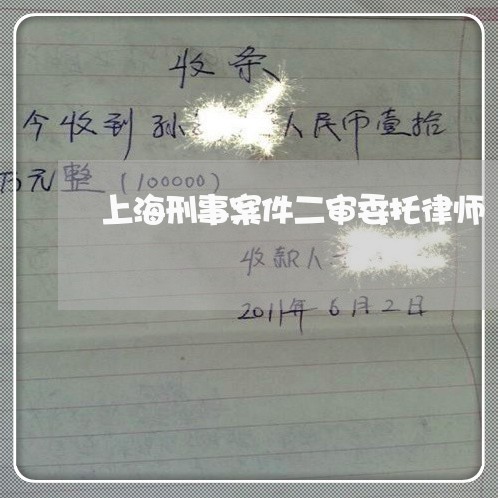 收条
今收到孙 人民币壹拾
万元整(100000)
上海刑事案件二审委托律师
收款人
2011年6月2日